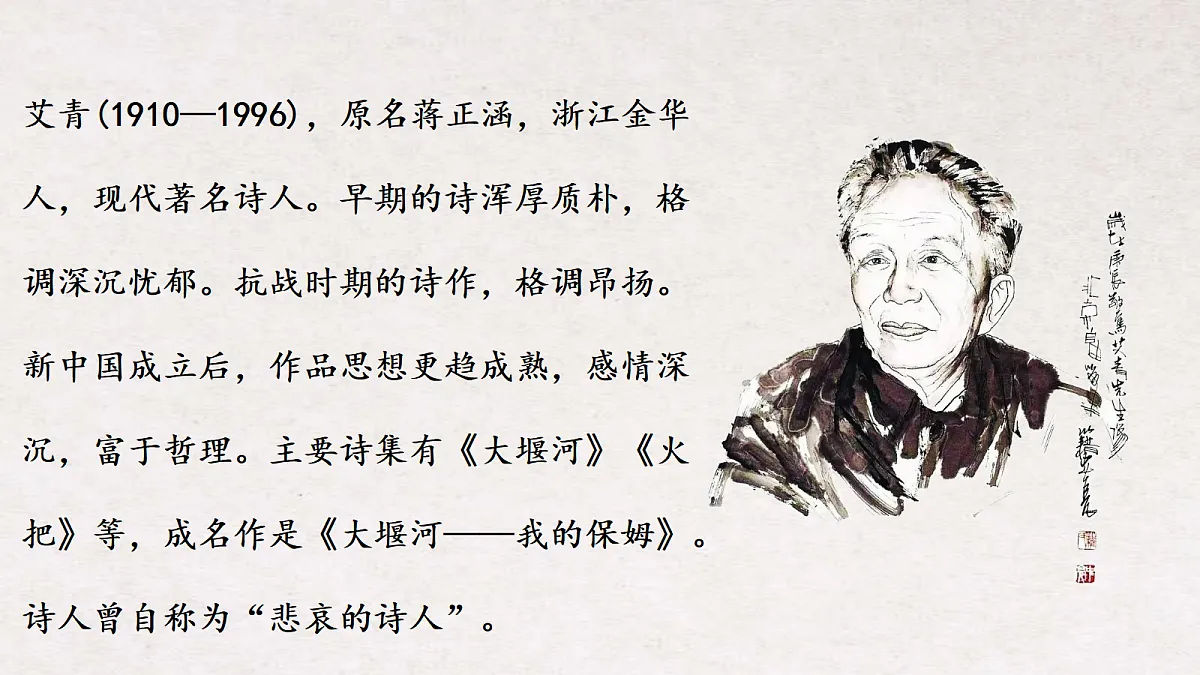 艾青(1910—1996)，原名蒋正涵，浙江金华
人，现代著名诗人。早期的诗浑厚质朴，格
调深沉忧郁。抗战时期的诗作，格调昂扬。
新中国成立后，作品思想更趋成熟，感情深
沉，富于哲理。主要诗集有《大堰河》《火
把》等，成名作是《大堰河——我的保姆》。
诗人曾自称为“悲哀的诗人”。